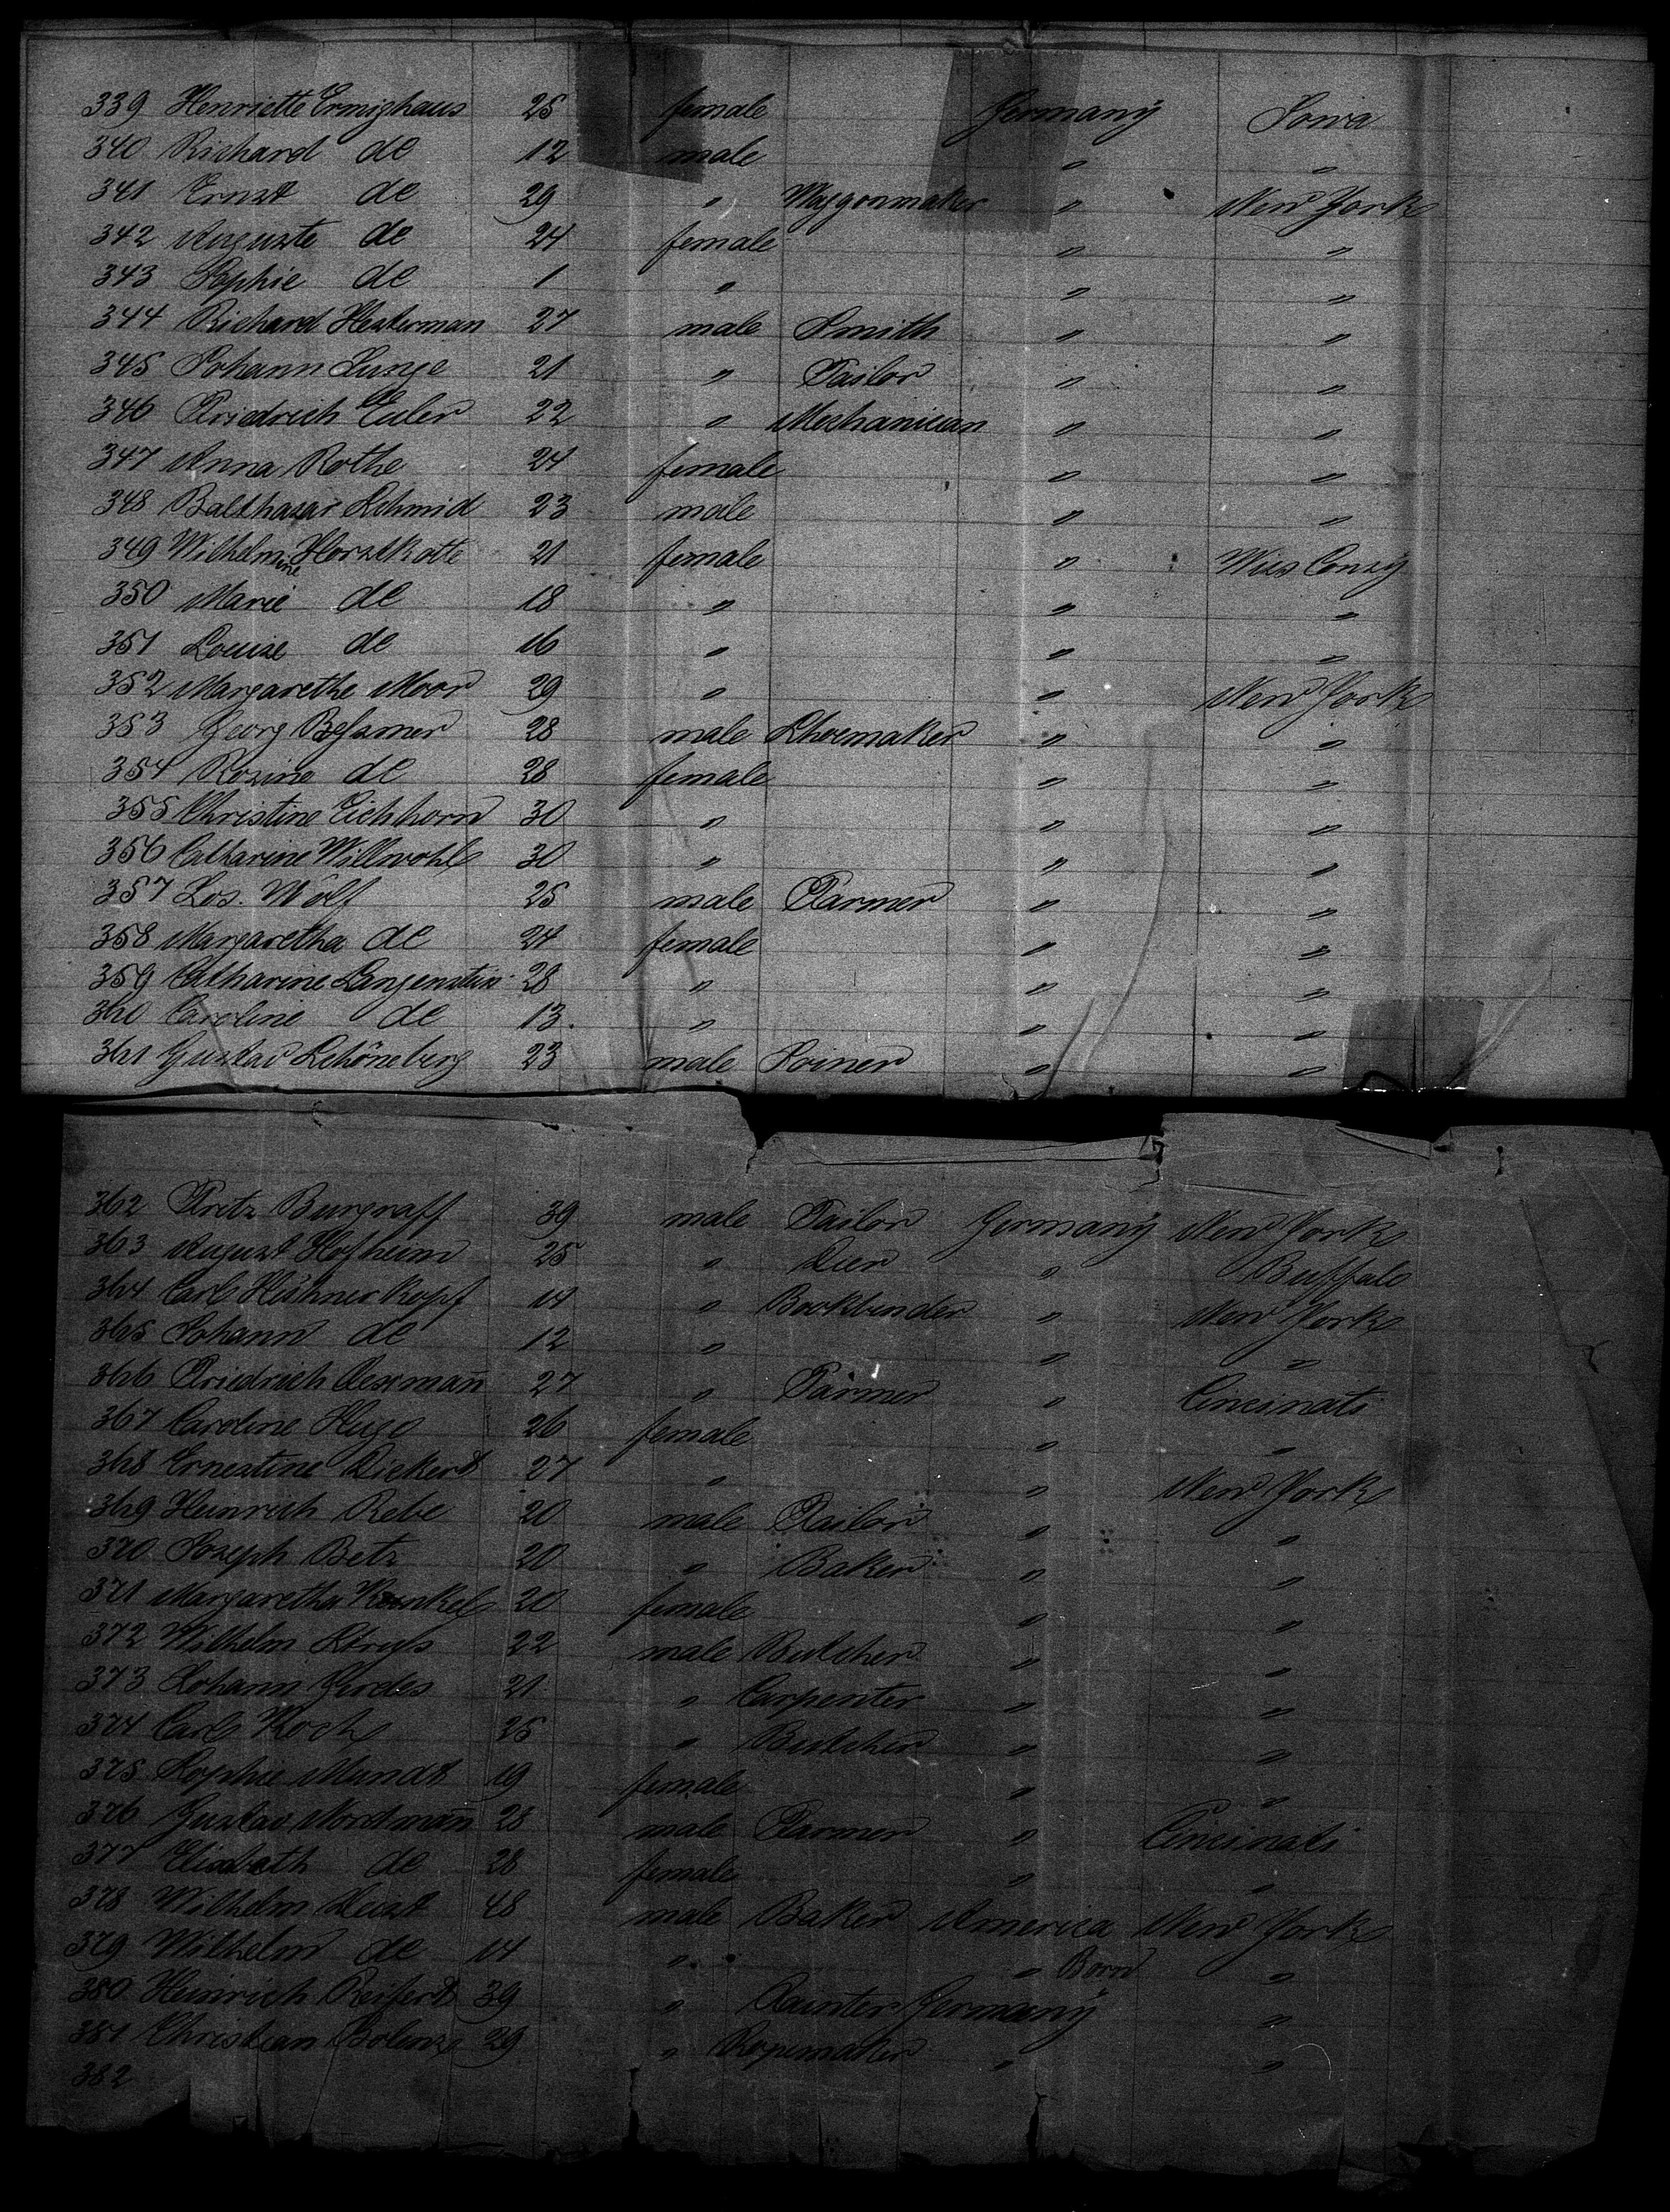 339 Henriette Ermighaus 25 female Germany Iowa
340 Richard de 12 male " "
341 Ernst de 29 " Waggonmaker " New York
342 Auguste de 24 female " "
343 Sophie de 1 " " "
344 Richard Hesterman 27 male Smith " "
345 Johann Lunge 21 " Tailor " "
346 Friedrich Euler 22 " Mechanician " "
347 Anna Rothe 24 female " "
348 Balthasar Schmid 23 male " "
349 Wilhelmine Horstkotte 21 female "
350 Marie de 18 " " "
351 Louise de 16 " " "
352 Margarethe Moor 29 " " New York
353 Georg Beßmer 28 male Shoemaker " "
354 Rosine de 28 female " "
355 Christine Eichhorn 30 " " "
356 Catharine Willwohl 30 " " "
357 Jos. Wolf 25 male Farmer " "
358 Margaretha de 24 female " "
359 Catharine Langenstein 28 " " "
360 Caroline de 13 " " "
361 Gustav Schöneberg 23 male Joiner " "
362 Fritz Burgraff 39 male Tailor Germany New York
363 August Hofheim 25 " Dier " Buffalo
364 Carl 14 " Bookbinder " New York
365 Johann de 12 " " "
366 Friedrich 27 " Farmer " Cincinati
367 Caroline Hugo 26 female " "
368 Ernestine Dickert 27 " " New York
369 Heinrich Rebe 20 male Tailor " "
370 Joseph Betz 20 " Baker " "
371 Margaretha Kunkel 20 female " "
372 Wilhelm 22 male Butcher " "
373 Johann Gerdes 21 " Carpenter " "
374 Carl Koch 25 " Butcher " "
375 Sophie Mundt 19 female " "
376 Gustav Nordmañ 28 male Farmer " Cincinati
377 Elisbeth de 28 female " "
378 Wilhelm 48 male Baker America New York
379 Wilhelm de 14 " " Born "
380 Heinrich Reifert 39 " Painter Germany "
381 Christian Bolenz 29 " Ropemaker " "
382